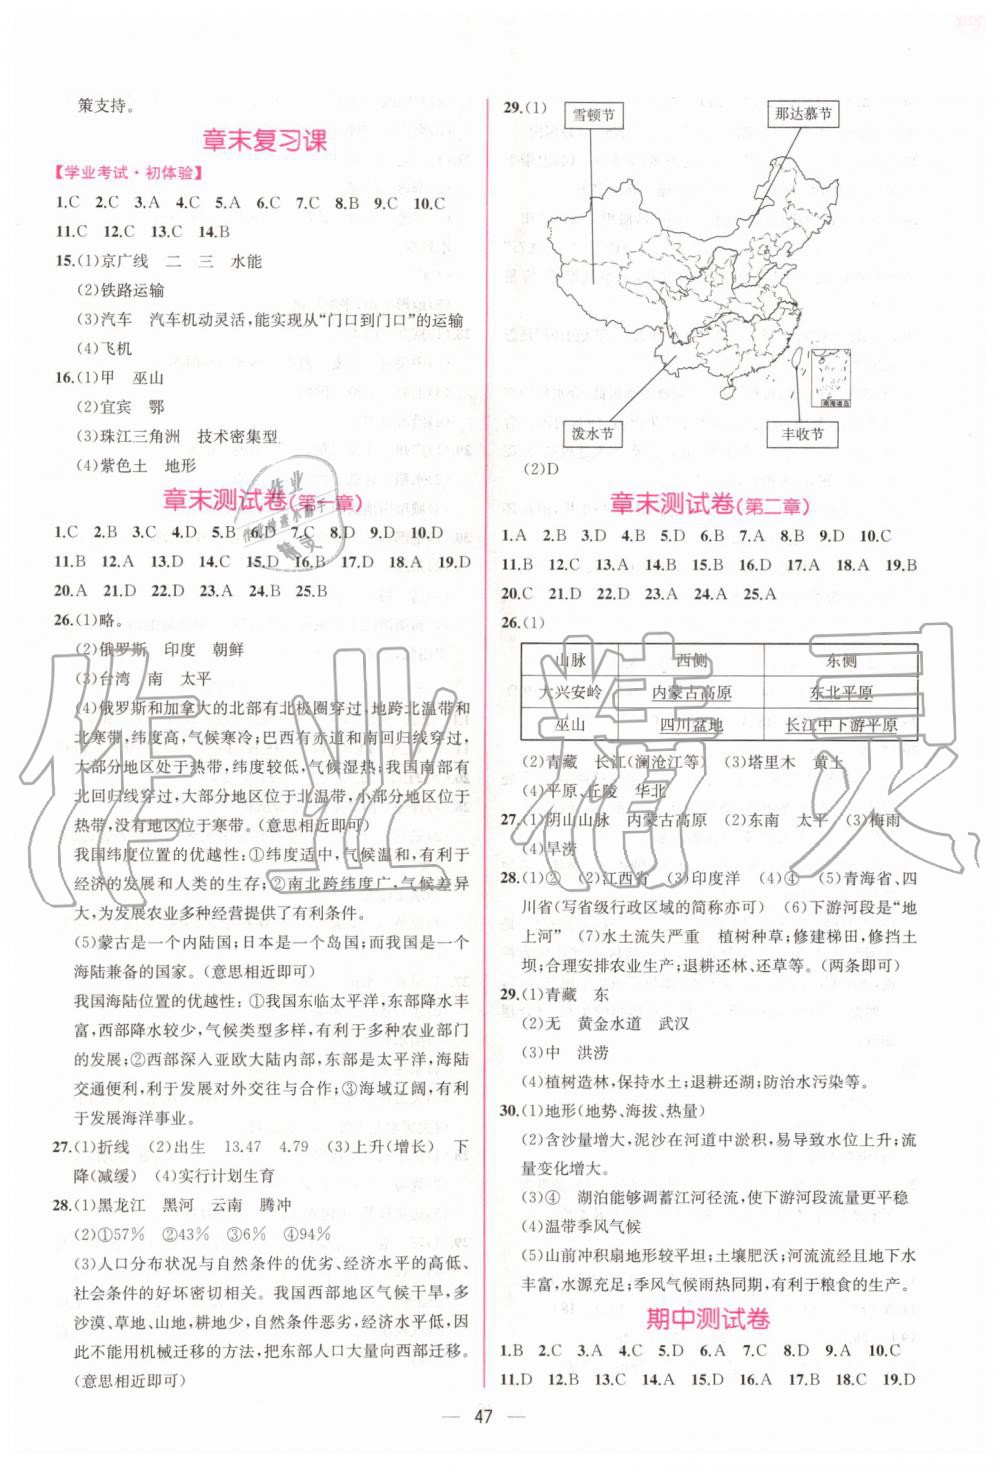 策支持。
章末复习课
【学业考试·初体验】
1.C 2.C 3.A 4.C 5.A 6.C 7.C 8.B 9.C 10.C
11.C 12.C 13.C 14.B
15.(1)京广线 二 三 水能
(2)铁路运输
(3)汽车 汽车机动灵活,能实现从“门口到门口”的运输
(4)飞机
16.(1)甲 巫山
(2)宜宾 鄂
(3)珠江三角洲 技术密集型
(4)紫色土 地形
章末测试卷(第一章)
1.C 2.B 3.C 4.D 5.B 6.D 7.C 8.D 9.D 10.D
11.B 12.A 13.D 14.C 15.D 16.B 17.D 18.A 19.D
20.A 21.D 22.D 23.A 24.B 25.B
26.(1)略。
(2)俄罗斯 印度 朝鲜
(3)台湾 南 太平
(4)俄罗斯和加拿大的北部有北极圈穿过,地跨北温带和
北寒带,纬度高,气候寒冷;巴西有赤道和南回归线穿过,
大部分地区处于热带,纬度较低,气候湿热;我国南部有
北回归线穿过,大部分地区位于北温带,小部分地区位于
热带,没有地区位于寒带。(意思相近即可)
我国纬度位置的优越性:①纬度适中,气候温和,有利于
经济的发展和人类的生存;②南北跨纬度广,气候差异
大,为发展农业多种经营提供了有利条件。
(5)蒙古是一个内陆国;日本是一个岛国;而我国是一个
海陆兼备的国家。(意思相近即可)
我国海陆位置的优越性:①我国东临太平洋,东部降水丰
富,西部降水较少,气候类型多样,有利于多种农业部门
的发展;②西部深入亚欧大陆内部,东部是太平洋,海陆
交通便利,利于发展对外交往与合作;③海域辽阔,有利
于发展海洋事业。
27.(1)折线 (2)出生 13.47 4.79 (3)上升(增长) 下
降(减缓) (4)实行计划生育
28.(1)黑龙江 黑河 云南 腾冲
(2)①57% ②43% ③6% ④94%
(3)人口分布状况与自然条件的优劣、经济水平的高低、
社会条件的好坏密切相关。我国西部地区气候干旱,多
沙漠、草地、山地,耕地少,自然条件恶劣,经济水平低,因
此不能用机械迁移的方法,把东部人口大量向西部迁移。
(意思相近即可)
29.(1)
雪顿节
那达慕节
泼水节
丰收节
南海诸岛
(2)D
章末测试卷(第二章)
1.A 2.B 3.D 4.B 5.D 6.B 7.A 8.B 9.D 10.C
11.B 12.C 13.D 14.B 15.A 16.B 17.A 18.A 19.B
20.C 21.D 22.D 23.A 24.A 25.A
26.(1)
山脉 西侧 东侧
大兴安岭 内蒙古高原 东北平原
巫山 四川盆地 长江中下游平原
(2)青藏 长江(澜沧江等) (3)塔里木 黄土
(4)平原、丘陵 华北
27.(1)阴山山脉 内蒙古高原 (2)东南 太平 (3)梅雨
(4)旱涝
28.(1)② (2)江西省 (3)印度洋 (4)④ (5)青海省、四
川省(写省级行政区域的简称亦可) (6)下游河段是“地
上河” (7)水土流失严重 植树种草;修建梯田,修挡土
坝;合理安排农业生产;退耕还林、还草等。(两条即可)
29.(1)青藏 东
(2)无 黄金水道 武汉
(3)中 洪涝
(4)植树造林,保持水土;退耕还湖;防治水污染等。
30.(1)地形(地势、海拔、热量)
(2)含沙量增大,泥沙在河道中淤积,易导致水位上升;流
量变化增大。
(3)④ 湖泊能够调蓄江河径流,使下游河段流量更平稳
(4)温带季风气候
(5)山前冲积扇地形较平坦;土壤肥沃;河流流经且地下水
丰富,水源充足;季风气候雨热同期,有利于粮食的生产。
期中测试卷
1.B 2.C 3.A 4.C 5.D 6.A 7.C 8.A 9.A 10.C
11.D 12.D 13.B 14.A 15.C 16.D 17.A 18.C 19.D
47
作业精灵